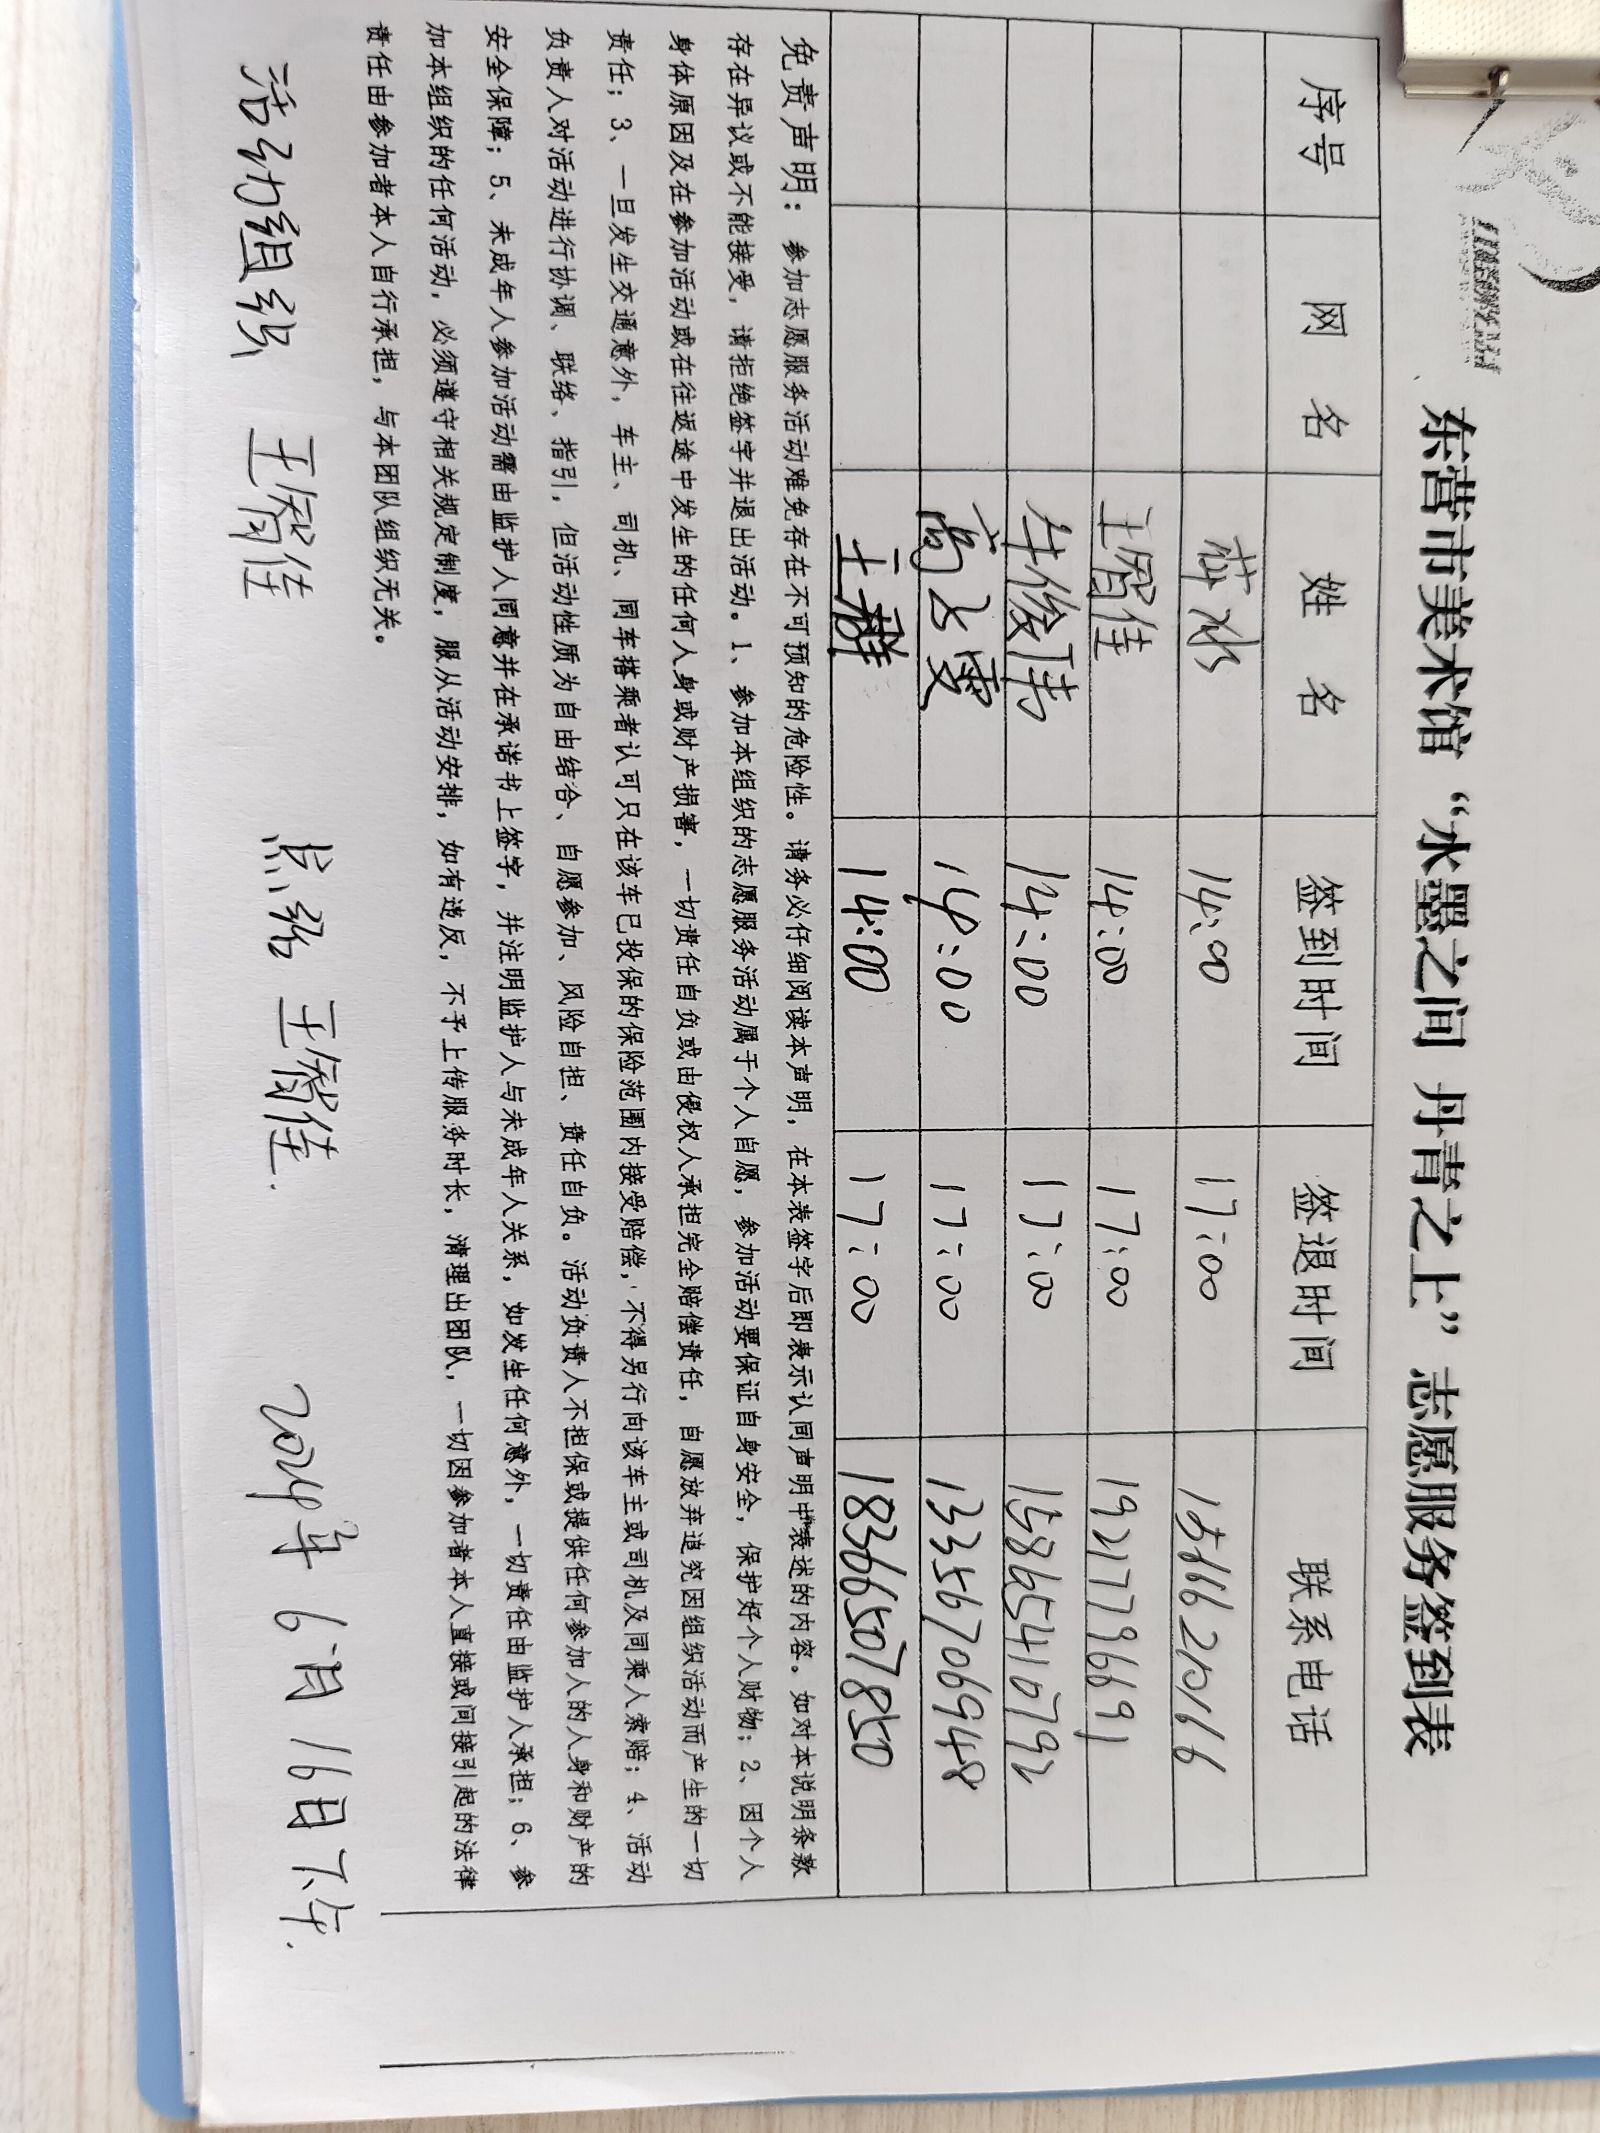 东营市美术馆“水墨之间 丹青之上”志愿服务签到表
序号 网 名 姓 名 签到时间 签退时间 联系电话
14:00 17:00 15666202066
王智佳 14:00 17:00 19217796691
牟俊伟 14:00 17:00 15865410792
高文霞 14:00 17:00 13356706948
王群 14:00 17:00 18366507850
免责声明： 参加志愿服务活动难免存在不可预知的危险性。请务必仔细阅读本声明，在本表签字后即表示认同声明中表述的内容。如对本说明条款
存在异议或不能接受，请拒绝签字并退出活动。1、参加本组织的志愿服务活动属于个人自愿，参加活动要保证自身安全，保护好个人财物；2、因个人
身体原因及在参加活动或在往返途中发生的任何人身或财产损害，一切责任自负或由侵权人承担完全赔偿责任，自愿放弃追究因组织活动而产生的一切
责任；3、一旦发生交通意外，车主、司机、同车搭乘者认可只在该车已投保的保险范围内接受赔偿，不得另行向该车主或司机及同乘人索赔；4、活动
负责人对活动进行协调、联络、指引，但活动性质为自由结合、自愿参加、风险自担、责任自负。活动负责人不担保或提供任何参加人的人身和财产的
安全保障；5、未成年人参加活动需由监护人同意并在承诺书上签字，并注明监护人与未成年人关系，如发生任何意外，一切责任由监护人承担；6、参
加本组织的任何活动，必须遵守相关规定制度，服从活动安排，如有违反，不予上传服务时长，清理出团队，一切因参加者本人直接或间接引起的法律
责任由参加者本人自行承担，与本团队组织无关。
活动组织 王智佳 总结 王智佳 2024年6月16日下午